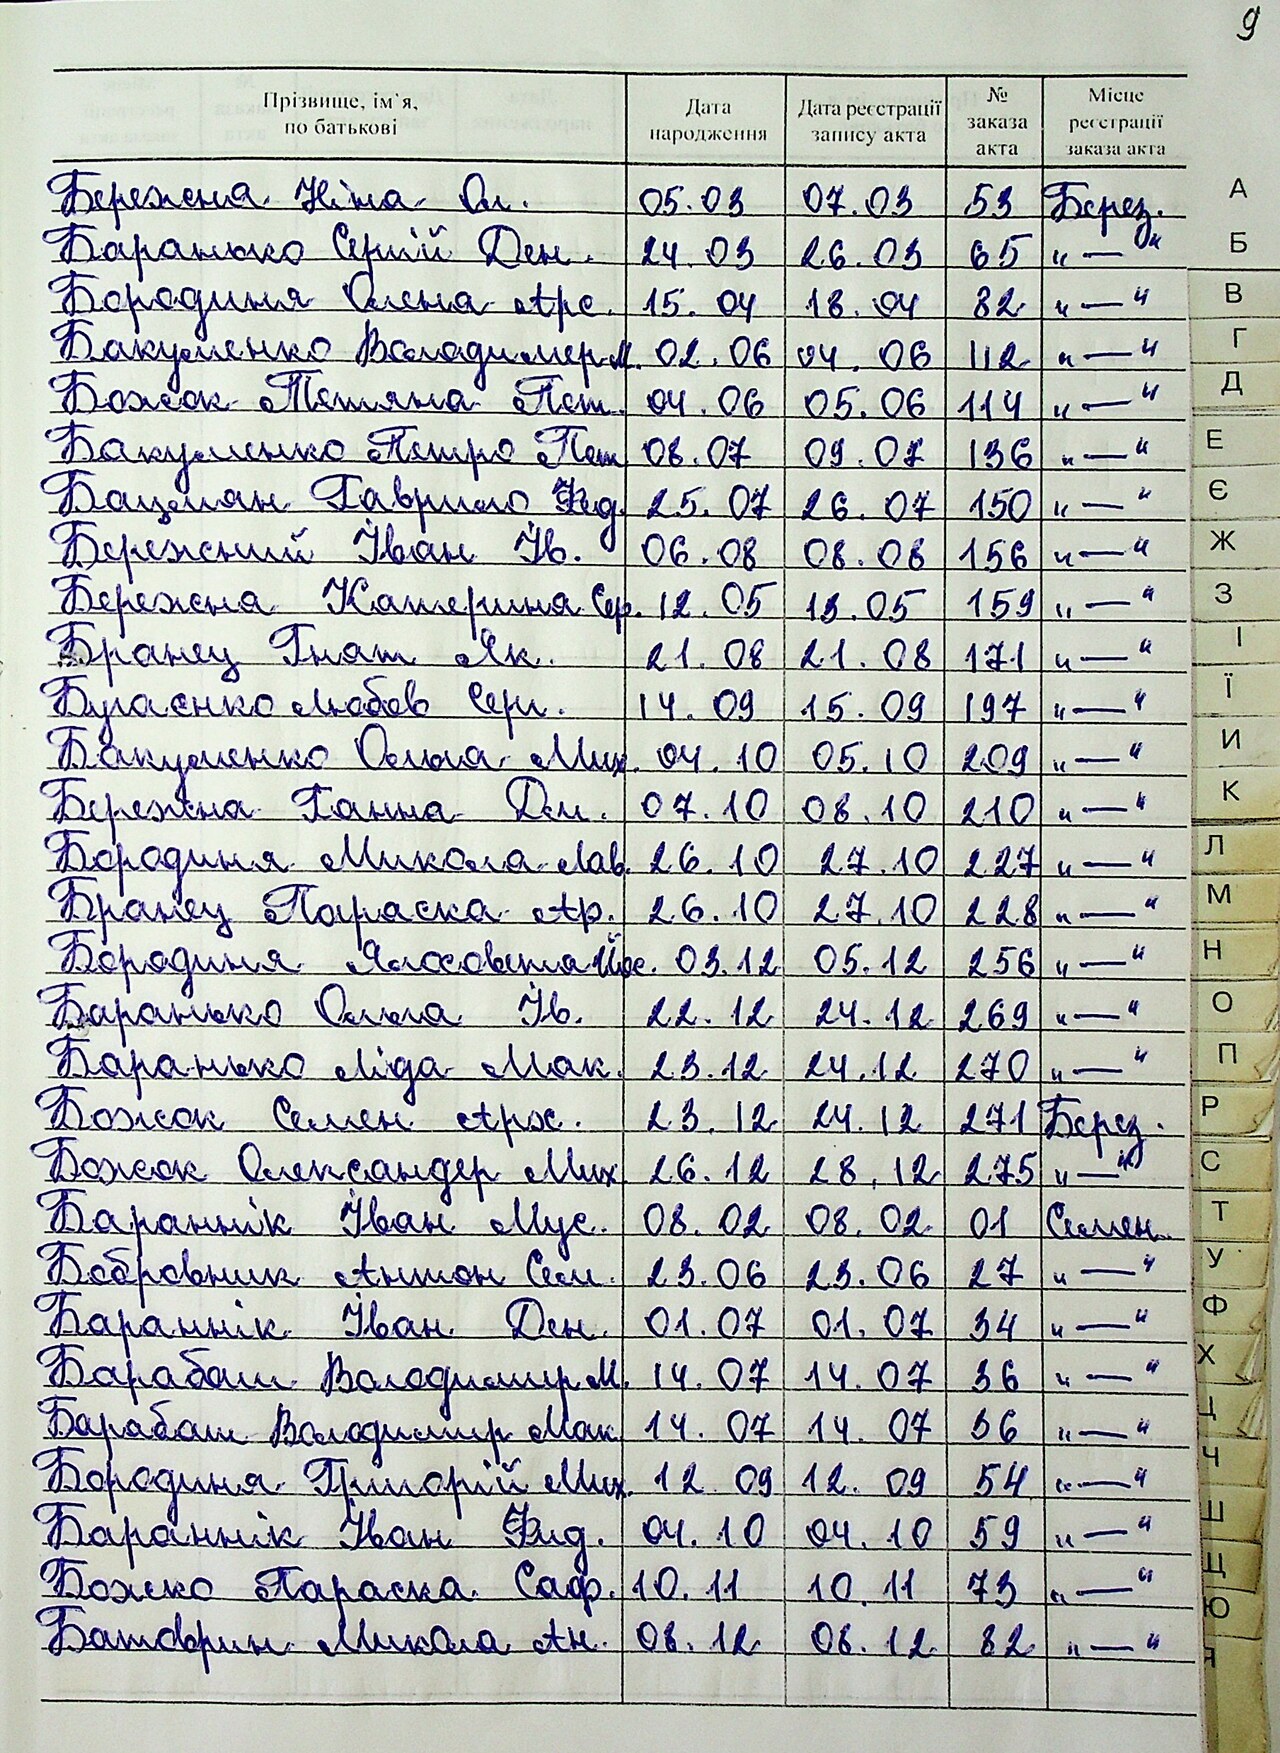 9
Прізвище, ім'я, по батькові Дата народження Дата реєстрації запису акта № заказа акта Місце реєстрації заказа акта
Бережна Ніна Ол. 05.03 07.03 53 Берез.
Баранько Сергій Ден. 24.03 26.03 65 "—"
Бородиня Олена Арс. 15.04 18.04 82 "—"
Бакуменко Володимер М. 02.06 04.06 112 "—"
Божок Тетяна Пет. 04.06 05.06 114 "—"
Бакуменко Петро Пет. 08.07 09.07 136 "—"
Бацман Гаврило Фед. 25.07 26.07 150 "—"
Бережний Іван Ів. 06.08 08.08 156 "—"
Бережна Катерина Сер. 12.05 13.05 159 "—"
Бранец Гнат Як. 21.08 21.08 171 "—"
Бугаєнко Любов Серг. 14.09 15.09 197 "—"
Бакуменко Ольга Мих. 04.10 05.10 209 "—"
Бережна Ганна Дем. 07.10 08.10 210 "—"
Бородиня Микола Лав. 26.10 27.10 227 "—"
Бранец Параска Ар. 26.10 27.10 228 "—"
Бородиня Йос. 03.12 05.12 256 "—"
Баранько Ольга Ів. 22.12 24.12 269 "—"
Баранько Ліда Мак. 23.12 24.12 270 "—"
Божок Семен Арх. 23.12 24.12 271 Берез.
Божок Олександер Мих. 26.12 28.12 275 "—"
Бараннік Іван Мус. 08.02 08.02 01 Семен.
Бобровник Антон Сем. 23.06 23.06 27 "—"
Бараннік Іван Ден. 01.07 01.07 34 "—"
Барабаш Володимир М. 14.07 14.07 36 "—"
Барабаш Володимир Мак. 14.07 14.07 36 "—"
Бородиня Григорій Мих. 12.09 12.09 54 "—"
Бараннік Іван Фед. 04.10 04.10 59 "—"
Божко Параска Саф. 10.11 10.11 73 "—"
Батоврин Микола Ан. 08.12 08.12 82 "—"
А
Б
В
Г
Д
Е
Є
Ж
З
І
Ї
И
К
Л
М
Н
О
П
Р
С
Т
У
Ф
Х
Ц
Ч
Ш
Щ
Ю
Я